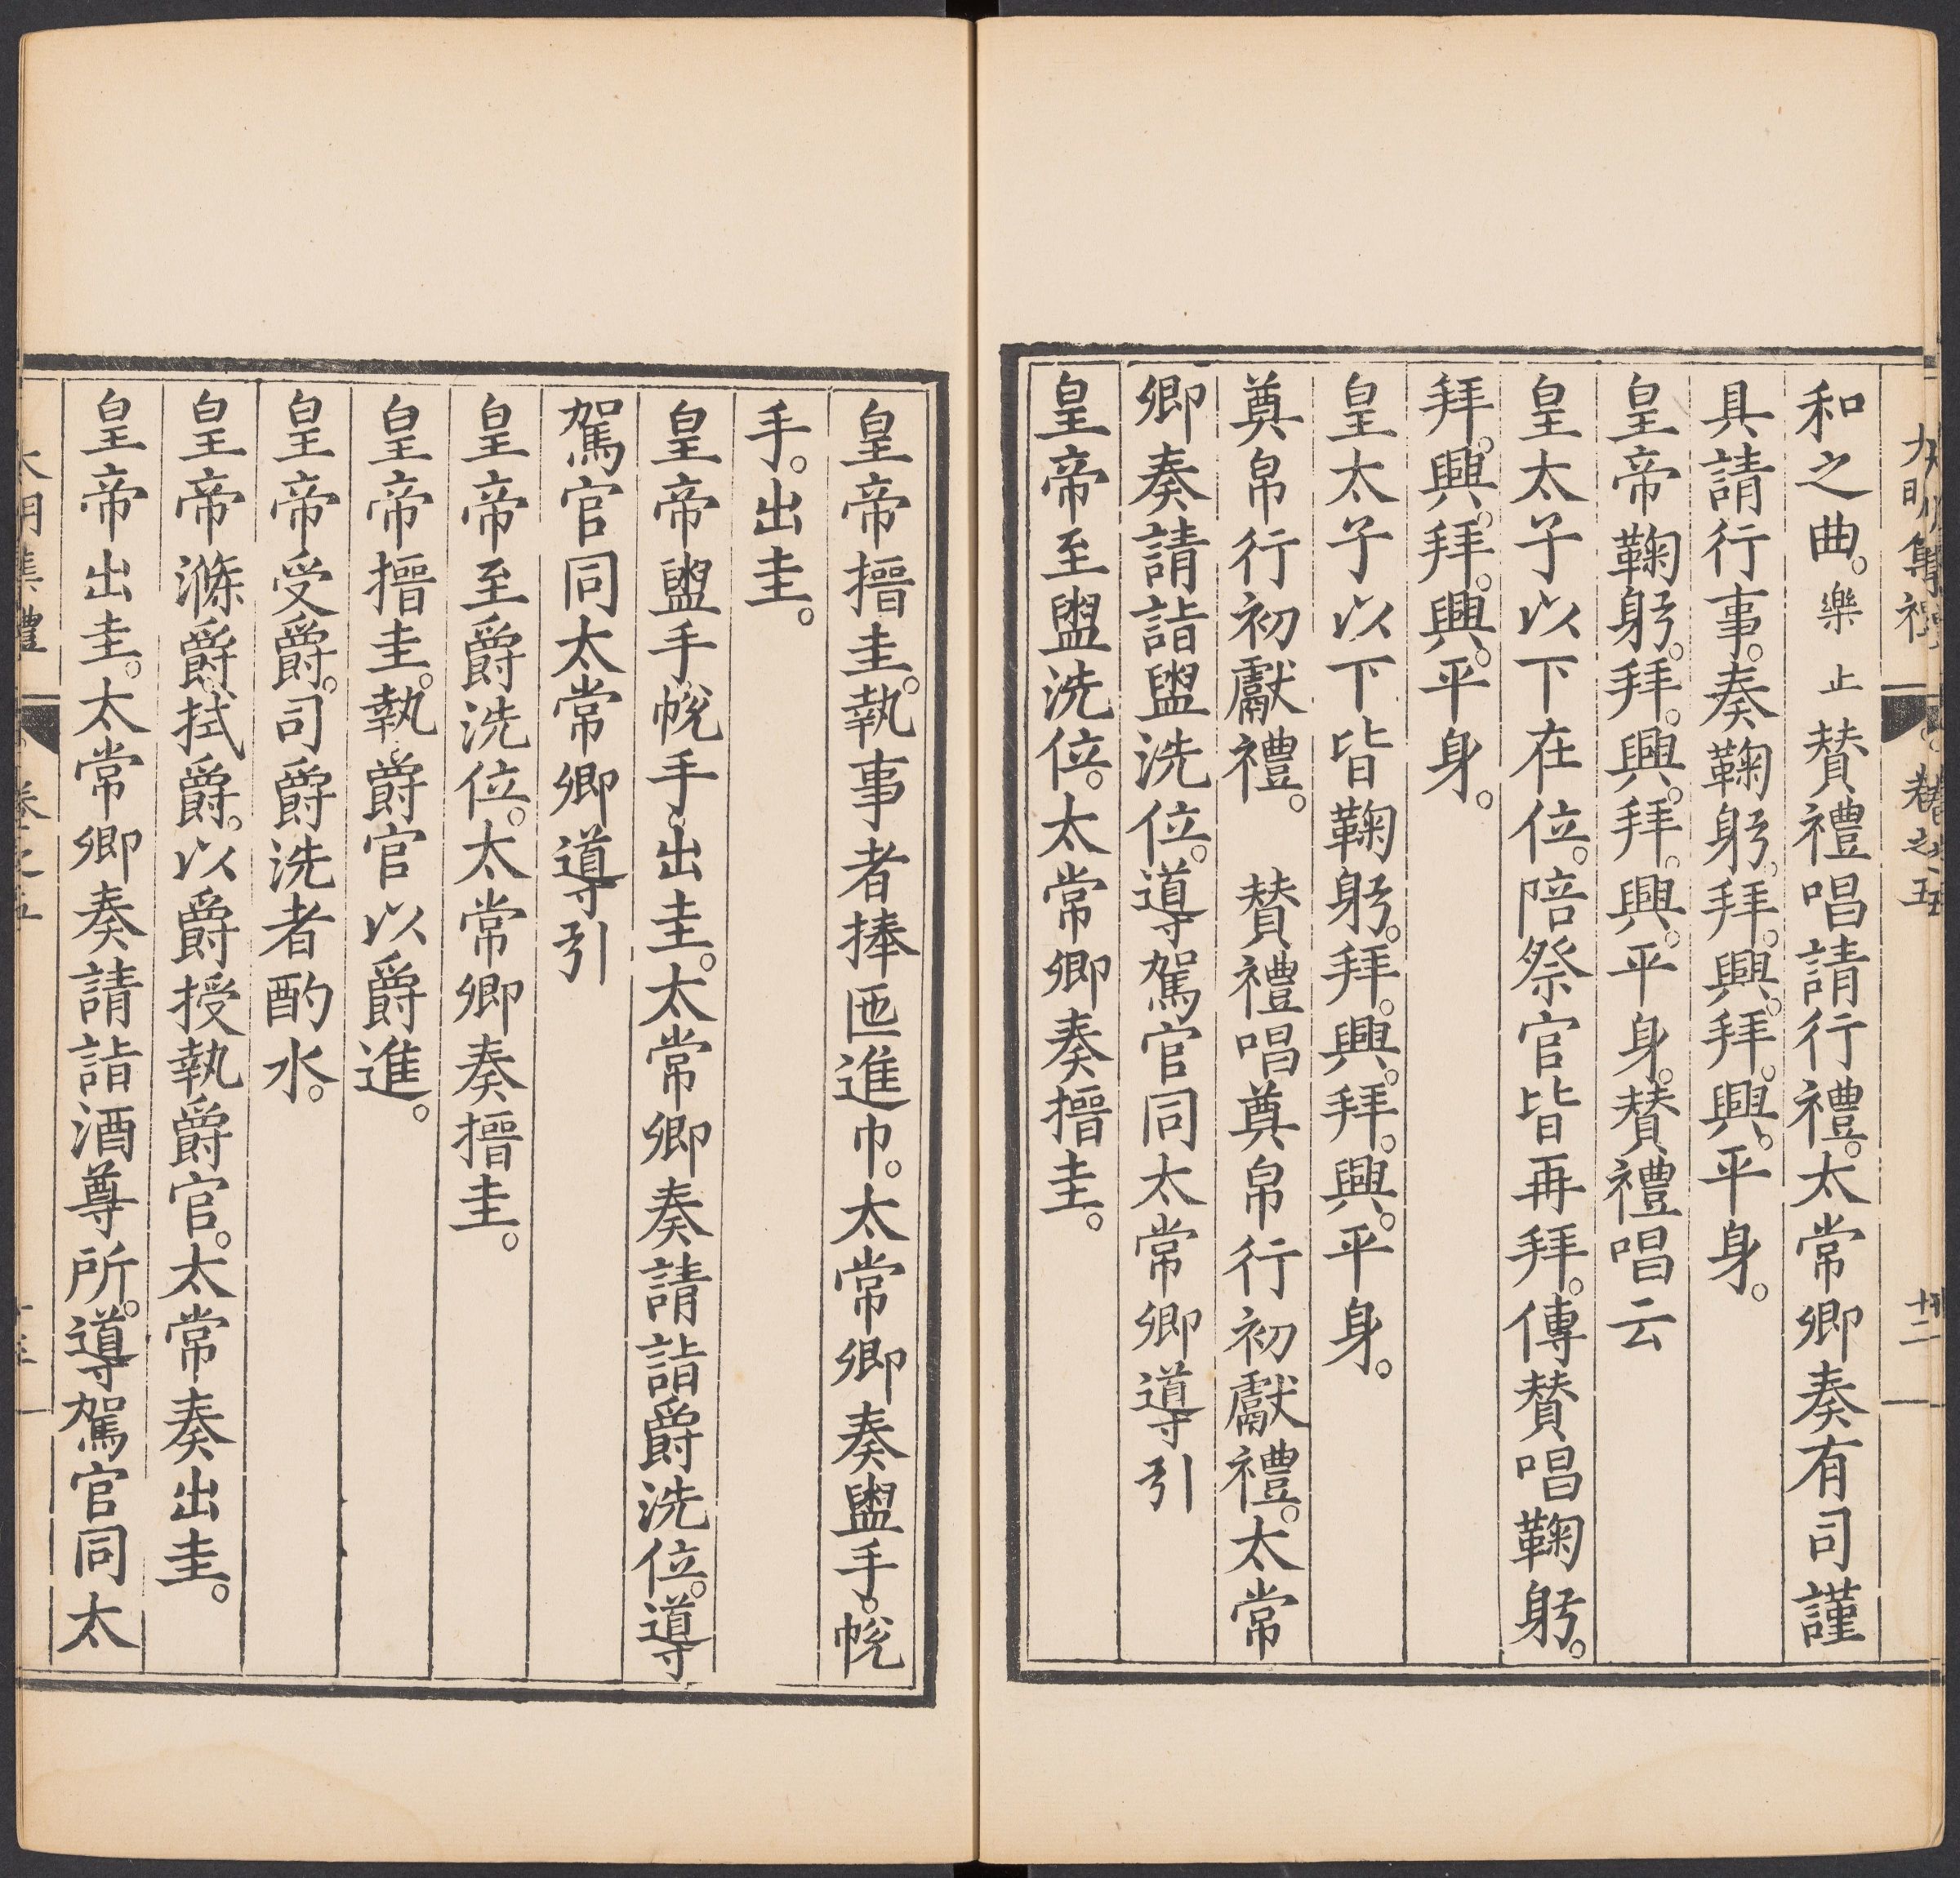 大明集禮 卷之五 十二
和之曲。樂止贊禮唱請行禮。太常卿奏有司謹
具請行事。奏鞠躬。拜。興。拜。興。平身。
皇帝鞠躬。拜。興。拜。興。平身。贊禮唱云
皇太子以下在位。陪祭官皆再拜。傳贊唱鞠躬。
拜。興。拜。興。平身。
皇太子以下皆鞠躬。拜。興。拜。興。平身。
奠帛行初獻禮。 贊禮唱奠帛行初獻禮。太常
卿奏請詣盥洗位。導駕官同太常卿導引
皇帝至盥洗位。太常卿奏搢圭。
皇帝搢圭。執事者捧匜進巾。太常卿奏盥手。帨
手。出圭。
皇帝盥手帨手。出圭。太常卿奏請詣爵洗位。導
駕官同太常卿導引
皇帝至爵洗位。太常卿奏搢圭。
皇帝搢圭。執爵官以爵進。
皇帝受爵。司爵洗者酌水。
皇帝滌爵。拭爵。以爵授執爵官。太常奏出圭。
皇帝出圭。太常卿奏請詣酒尊所。導駕官同太
大明集禮 卷之五